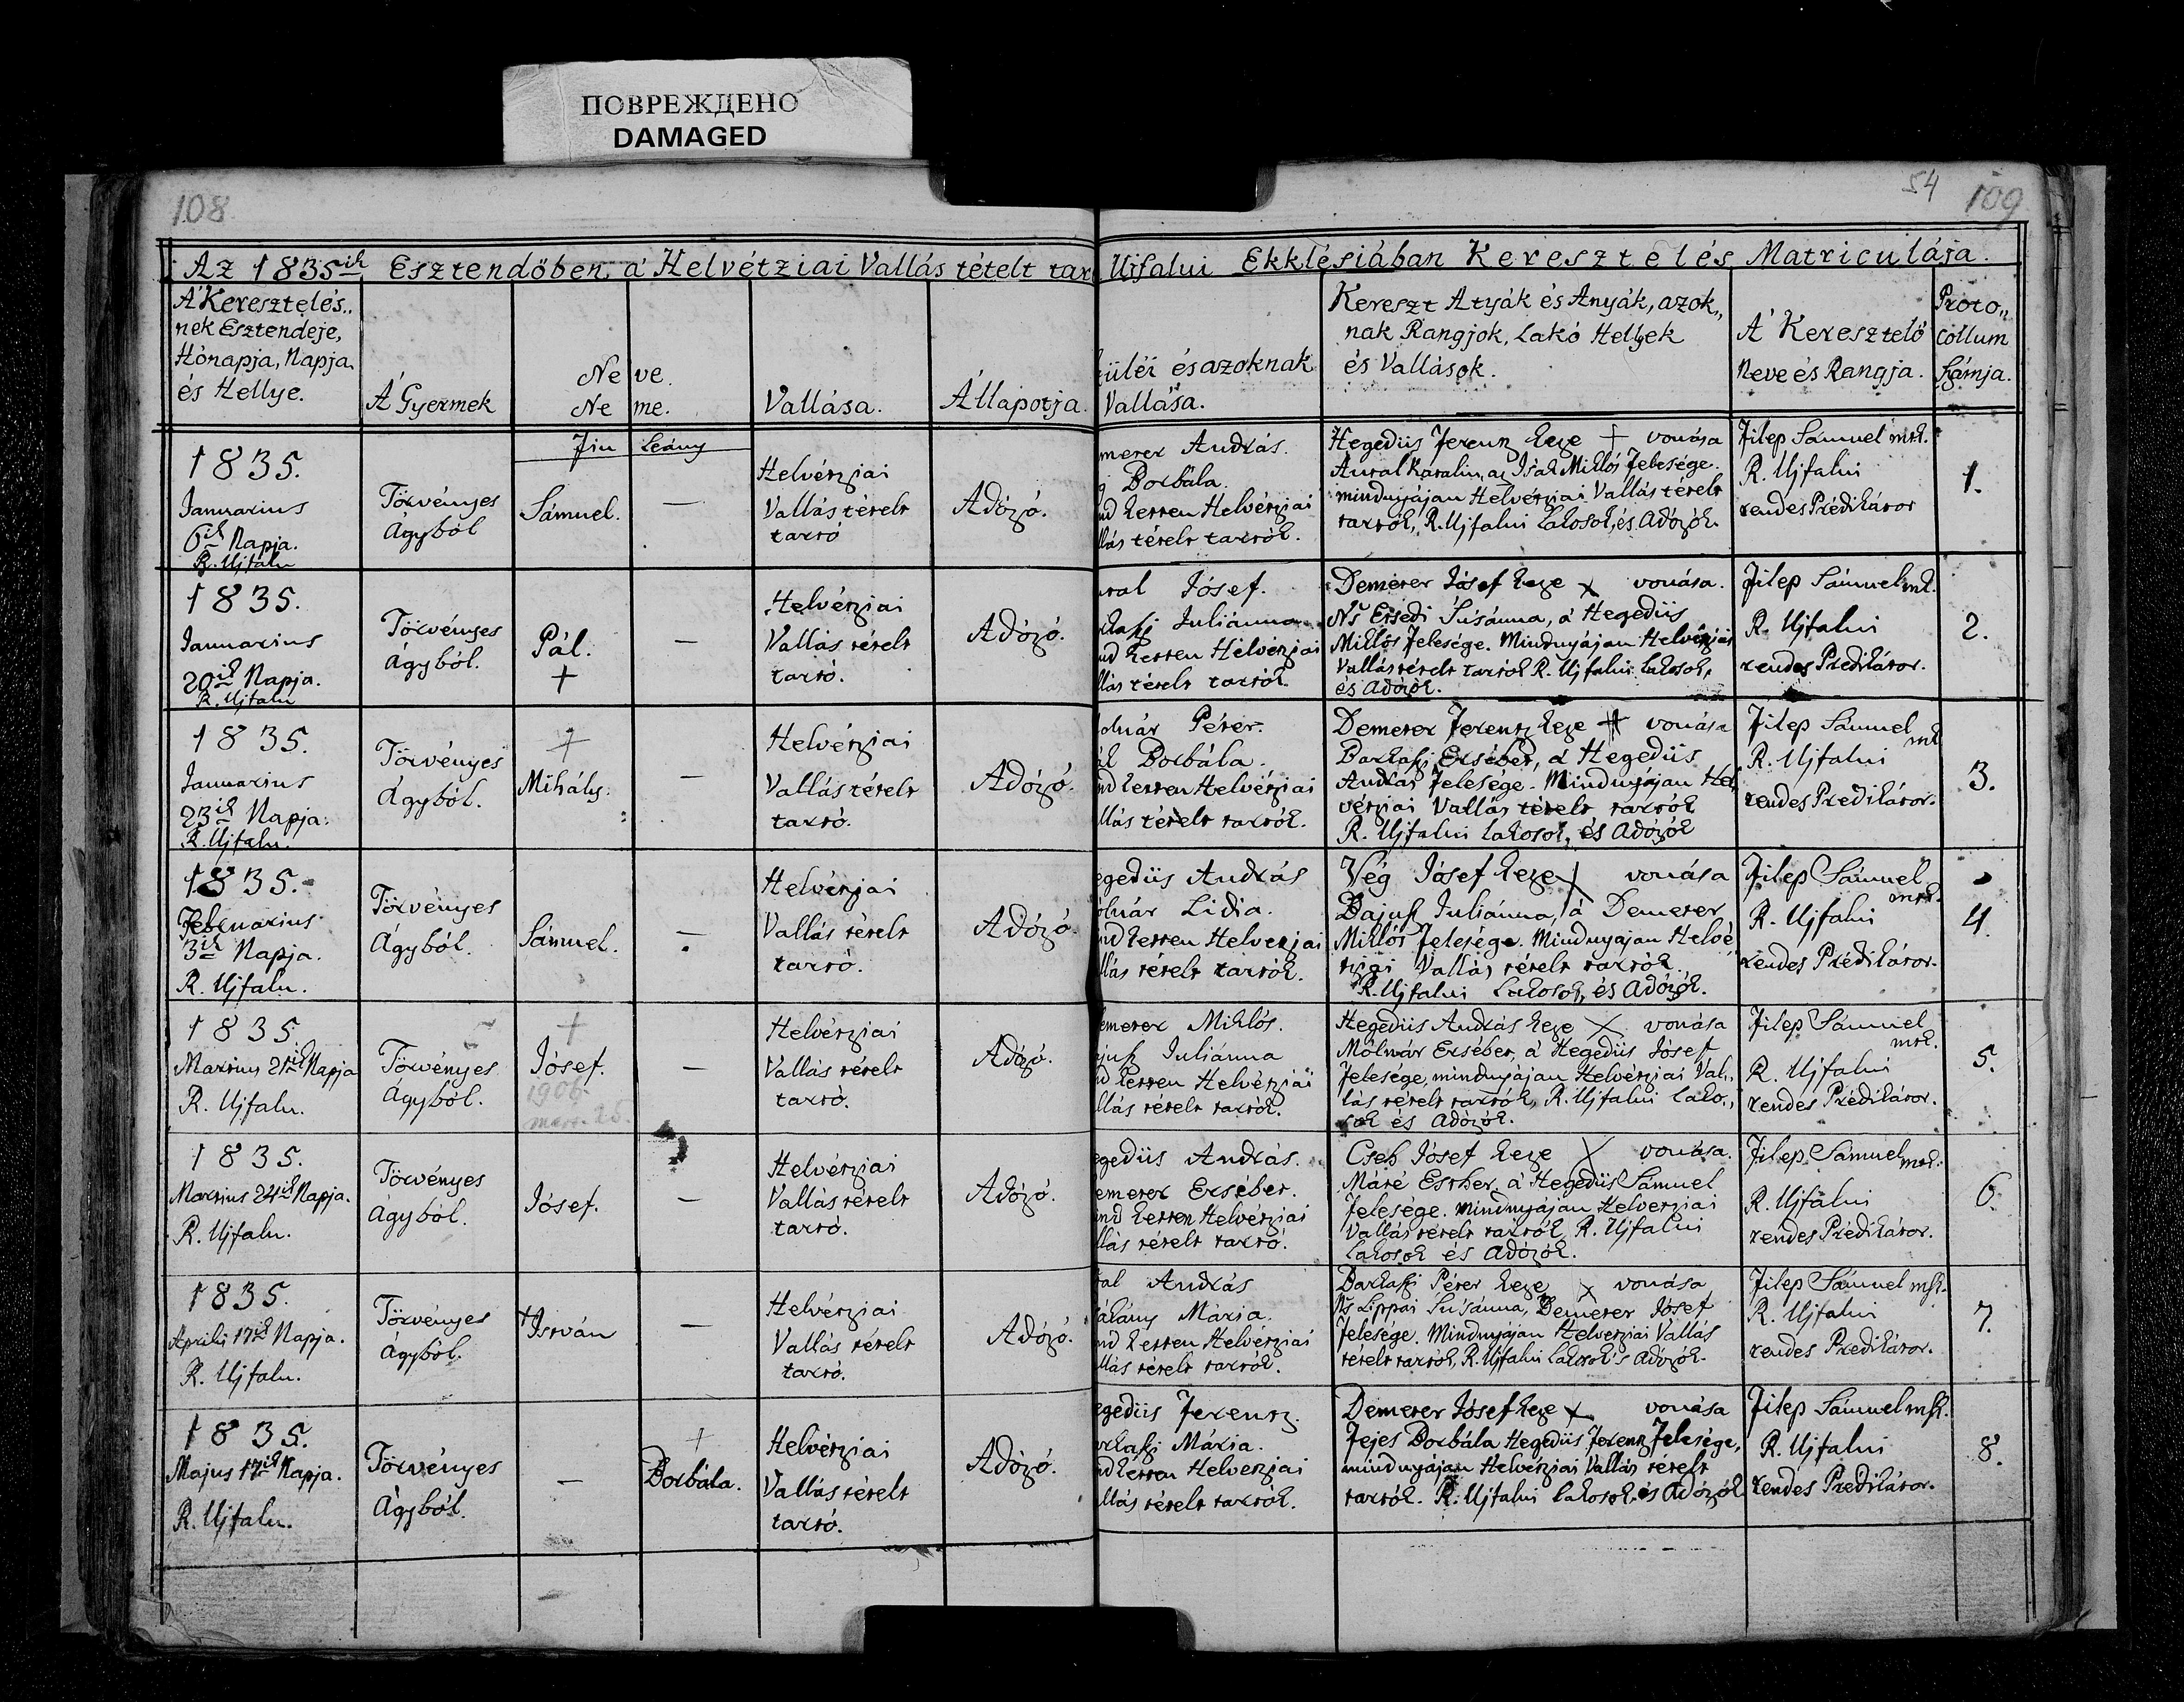 ПОВРЕЖДЕНО
DAMAGED
108
54 109
Az 1835ik Esztendőben, á Helvétziai Vallás tételt tar Ujfalui Ekklésiában Keresztelés Matriculája.
A' Keresztelés„
nek Esztendeje,
Hónapja, Napja
és Hellye.
A' Gyermek
Neve.
Neme.
Fiu Leány
Vallása.
Állapotja.
üléi és azoknak
Vallása.
Kereszt Atyák és Anyák, azok„
nak Rangjok, Lakó Hellyek
és Vallások.
A' Keresztelő
Neve és Rangja.
Proto„
collum
Számja.
1835.
Ianuarius
6ik Napja.
R. Ujfalu
Törvényes
Ágyból
Sámuel.
—
Helvétziai
Vallás tételt
tartó
Adózó.
meter András.
Borbála.
nd ketten Helvétziai
llás tételt tartók.
Hegedüs Ferentz keze + vonása
Antal Katalin, az Isák Miklós Felesége.
mindnyájan Helvétziai Vallás tételt
tartók, R. Ujfalui Lakosok, és Adózók.
Filep Sámuel mk.
R. Ujfalui
rendes Prédikátor
1.
1835.
Ianuarius
20ik Napja.
R. Ujfalu
Törvényes
Ágyból.
Pál.
+
—
Helvétziai
Vallás tételt
tartó.
Adózó.
tal Iósef.
Juliánna
nd ketten Helvétziai
llás tételt tartók
Demeter Iósef keze x vonása.
Ns Ersedi Susánna, á Hegedüs
Miklós Felesége. Mindnyájan Helvétziai
Vallás tételt tartók R. Ujfalui Lakosok,
és Adózók.
Filep Sámuel mk.
R. Ujfalui
rendes Prédikátor.
2.
1835.
Ianuarius
23ik Napja.
R. Ujfalu.
Törvényes
Ágyból.
+
Mihály.
—
Helvétziai
Vallás tételt
tartó.
Adózó.
olnár Péter.
Borbála.
nd ketten Helvétziai
llás tételt tartók.
Demeter Ferentz keze + vonása
Barkaszi Ersébet, á Hegedüs
András Felesége. Mindnyájan Hel
vétziai Vallás tételt tartók
R. Ujfalui Lakosok, és Adózók
Filep Sámuel
mk
R. Ujfalui
rendes Prédikátor.
3.
1835.
Februarius
3ik Napja.
R. Ujfalu.
Törvényes
Ágyból.
Sámuel.
—
Helvétziai
Vallás tételt
tartó.
Adózó.
egedüs András
olnár Lidia.
nd ketten Helvetziai
llás tételt tartók.
Vég Iósef keze x vonása
Bajusz Juliánna, á Demeter
Miklós Felesége. Mindnyájan Helvé
tziai Vallás tételt tartók.
R. Ujfalui Lakosok, és Adózók.
Filep Sámuel
mk.
R. Ujfalui
rendes Prédikátor.
4.
1835.
Martius 21ik Napja
R. Ujfalu.
Törvényes
Ágyból.
+
Iósef.
1906.
márt. 25.
—
Helvétziai
Vallás tételt
tartó.
Adózó.
emeter Miklós.
jusz Juliánna
nd ketten Helvétziai
llás tételt tartók.
Hegedüs András keze x vonása
Mólnár Ersébet, á Hegedüs Iósef
Felesége, mindnyájan Helvétziai Val„
lás tételt tartók, R. Ujfalui Lako„
sok és Adózók.
Filep Sámuel
mk.
R. Ujfalui
rendes Prédikátor.
5.
1835.
Martius 24ik Napja.
R. Ujfalu.
Törvényes
Ágyból.
Iósef.
—
Helvétziai
Vallás tételt
tartó.
Adózó.
egedüs András.
emeter Ersébet.
nd ketten Helvétziai
llás tételt tartó.
Cseh Iósef keze x vonása.
Máré Esther, á Hegedüs Sámuel
Felesége. mindnyájan Helvetziai
Vallás tételt tartók, R. Ujfalui
Lakosok és Adózók.
Filep Sámuel mk.
R. Ujfalui
rendes Prédikátor.
6.
1835.
Aprilis 17ik Napja.
R. Ujfalu.
Törvényes
Ágyból.
+István
—
Helvétziai
Vallás tételt
tartó.
Adózó.
tal András
Mária.
nd ketten Helvétziai
llás tételt tartók.
Barkaszi Péter keze x vonása
Ns Lippai Susánna, Demeter Iósef
Felesége. Mindnyájan Helvetziai Vallás
tételt tartók, R. Ujfalui Lakosok's Adózók.
Filep Sámuel mk.
R. Ujfalui
rendes Prédikátor.
7.
1835.
Majus 17ik Napja.
R. Ujfalu.
Törvényes
Ágyból.
—
+
Borbála.
Helvétziai
Vallás tételt
tartó.
Adózó.
egedüs Ferentz.
rkaszi Mária.
nd ketten Helvetziai
llás tételt tartók.
Demeter Iósef keze x vonása
Fejes Borbála Hegedüs Ferentz Felesége,
mindnyájan Helvétziai Vallás tételt
tartók. R. Ujfalui Lakosok, és Adózók
Filep Sámuel mk.
R. Ujfalui
rendes Prédikátor.
8.